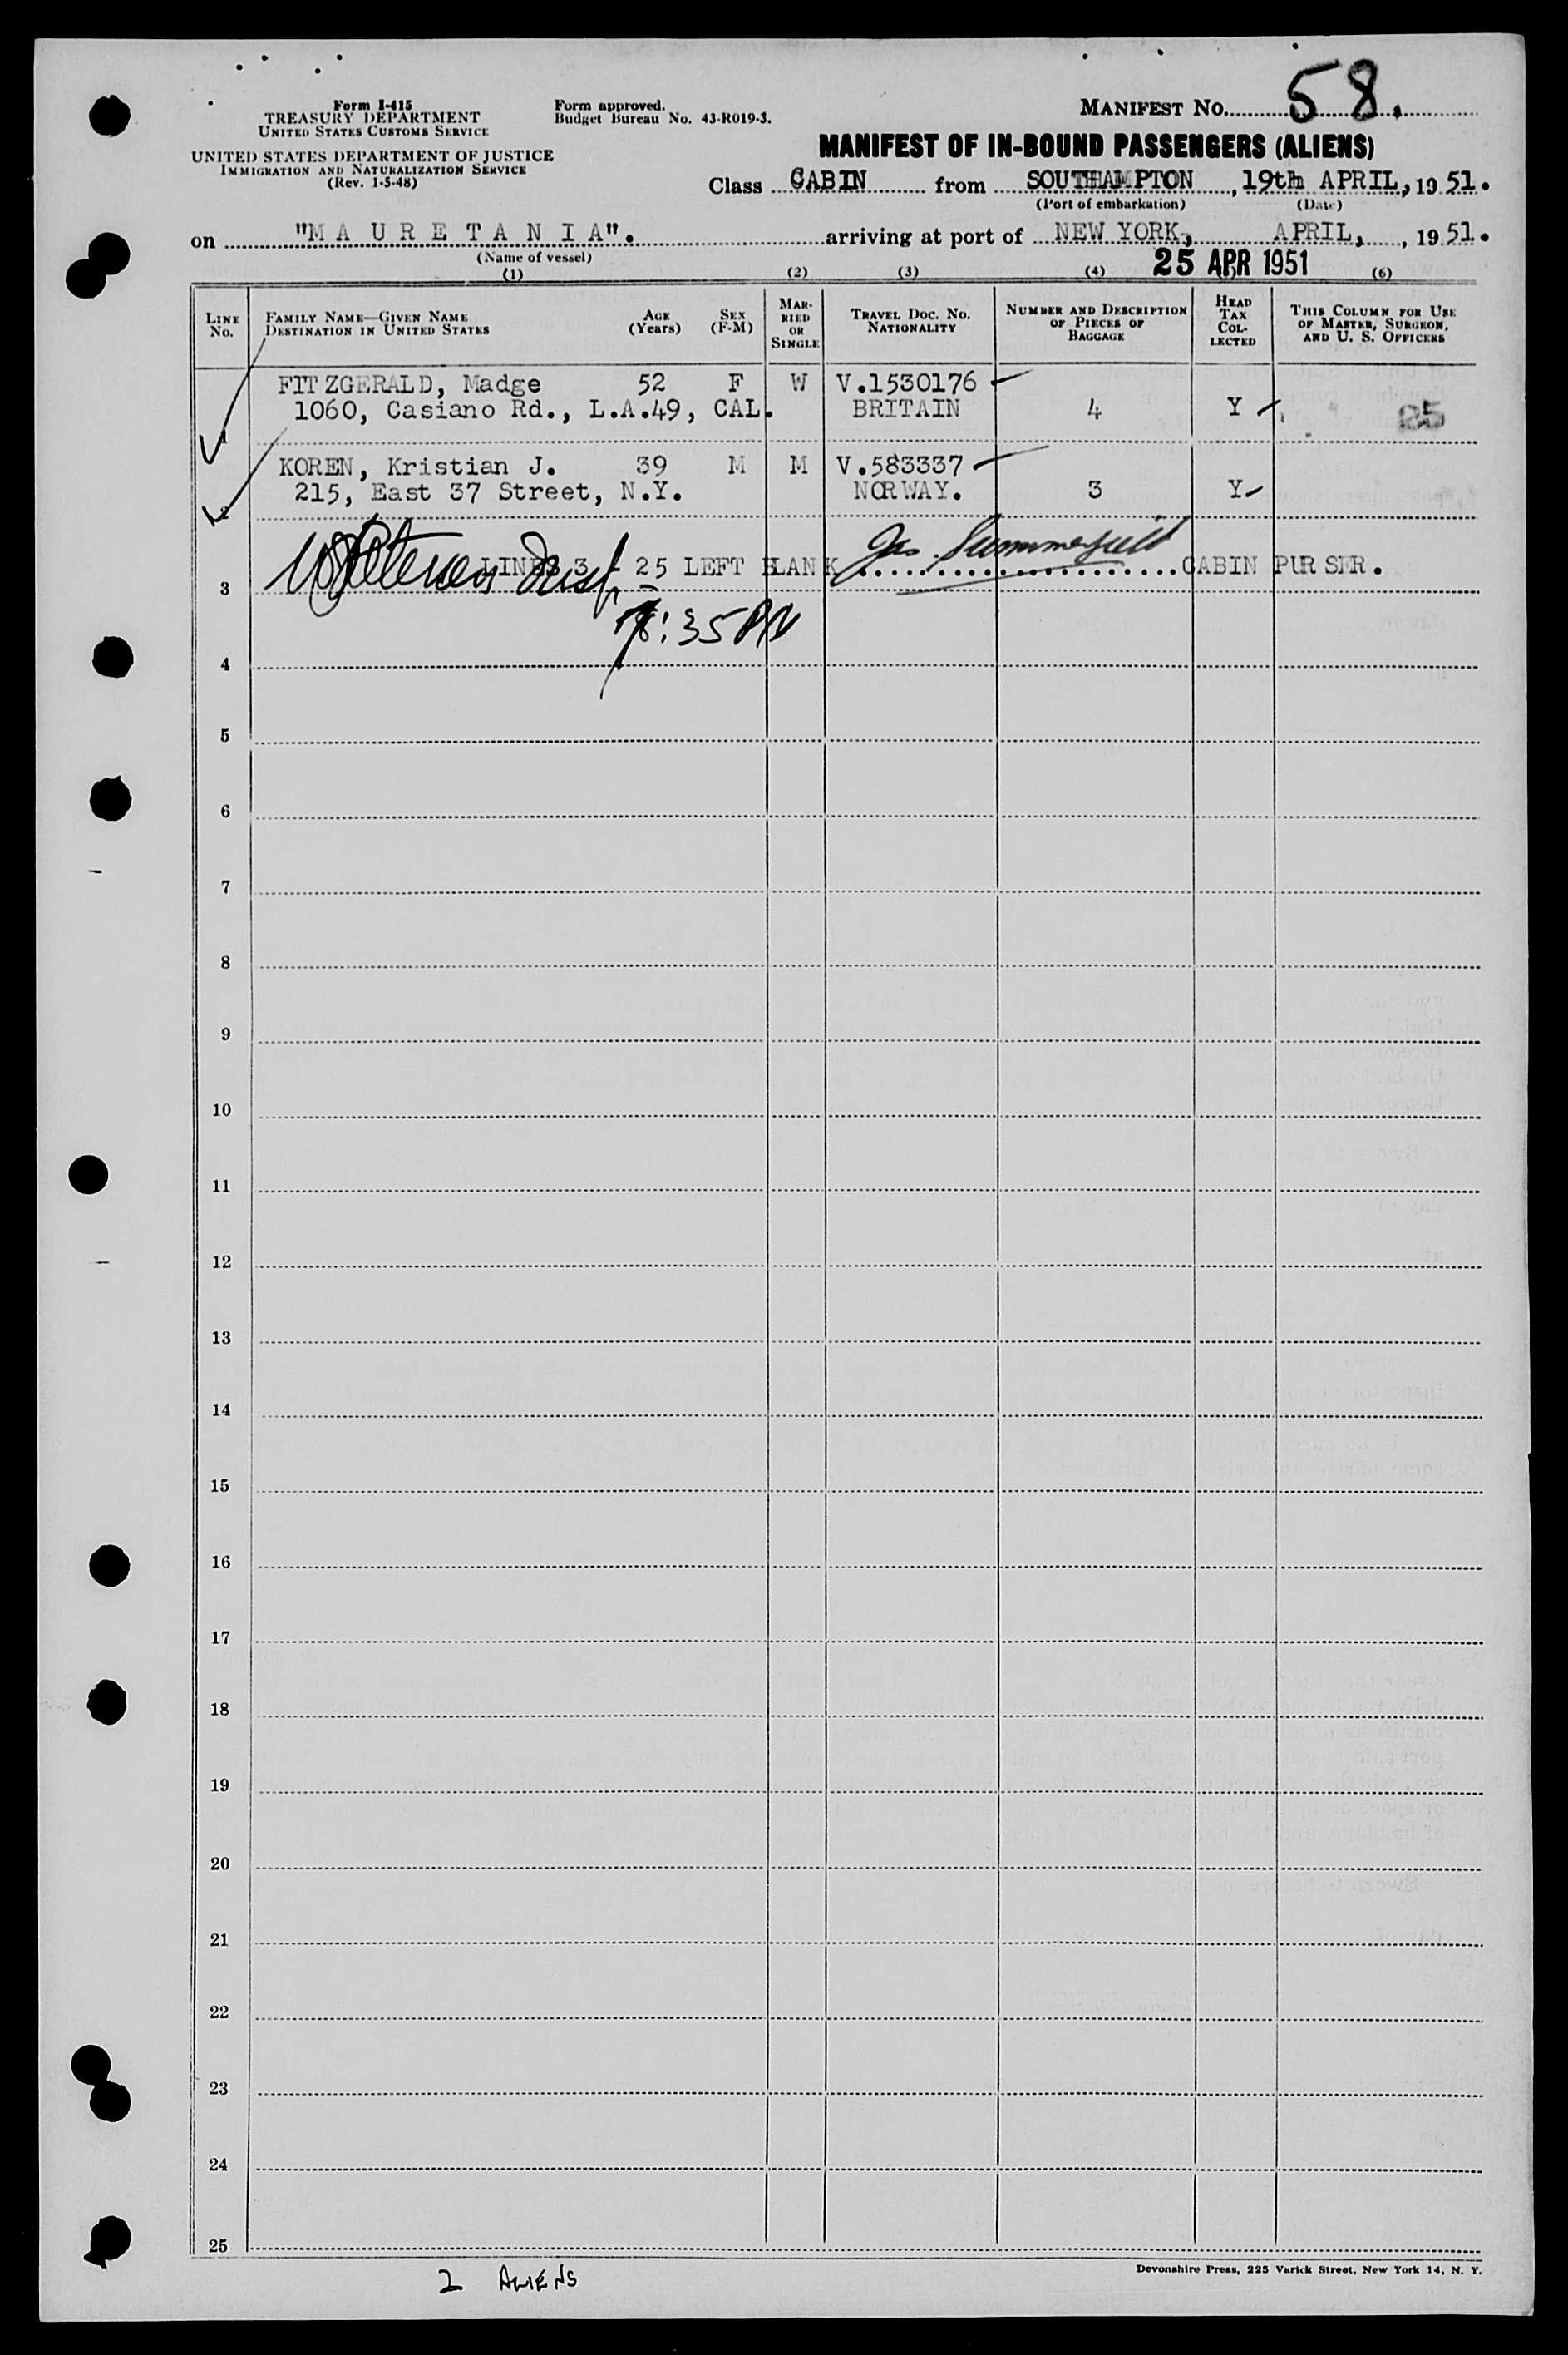 MANIFEST NO. 58.
Form I-415
TREASURY DEPARTMENT
UNITED STATES CUSTOMS SERVICE
UNITED STATES DEPARTMENT OF JUSTICE
IMMIGRATION AND NATURALIZATION SERVICE
(Rev. 1-5-48)
Form approved.
Budget Bureau No. 43-R019-3.
MANIFEST OF IN-BOUND PASSENGERS (ALIENS)
Class CABIN from SOUTHAMPTON, 19th APRIL, 19 51.
(Port of embarkation) (Date)
on "M A U R E T A N I A". arriving at port of NEW YORK, APRIL, , 19 51.
(Name of vessel)
25 APR 1951
(1) (2) (3) (4) (6)
LINE NO. FAMILY NAME—GIVEN NAME DESTINATION IN UNITED STATES AGE (Years) SEX (F-M) MARRIED OR SINGLE TRAVEL DOC. NO. NATIONALITY NUMBER AND DESCRIPTION OF PIECES OF BAGGAGE HEAD TAX COLLECTED THIS COLUMN FOR USE OF MASTER, SURGEON, AND U. S. OFFICERS
FITZGERALD, Madge 52 F W V.1530176
1060, Casiano Rd., L.A.49, CAL. BRITAIN 4 Y 25
1
KOREN, Kristian J. 39 M M V.583337
215, East 37 Street, N.Y. NORWAY. 3 Y
2
LINES 3 - 25 LEFT BLANK Jas. Summerfield CABIN PURSER.
3
:35 PM
4
5
6
7
8
9
10
11
12
13
14
15
16
17
18
19
20
21
22
23
24
25
2 ALIENS
Devonshire Press, 225 Varick Street, New York 14, N. Y.